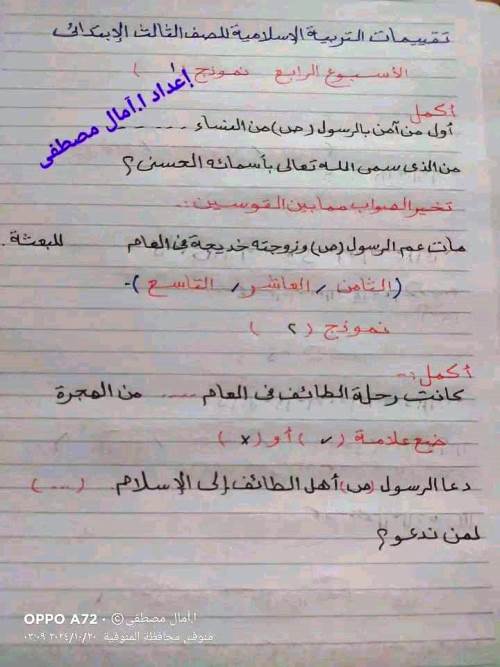 تقييمات التربية الإسلامية للصف الثالث الإبتدائى
الأسبوع الرابع نموذج (١)
إعداد أ.آمال مصطفى
أكمل
أول من آمن بالرسول (ص) من النساء ......
من الذى سمى الله تعالى بأسمائه الحسنى ؟
تخير الصواب مما بين القوسين :.
مات عم الرسول (ص) وزوجته خديجة فى العام للبعثة .
(الثامن / العاشر / التاسع) .-
نموذج (٢)
أكمل :-
كانت رحلة الطائف فى العام ..... من الهجرة
ضع علامة (✓) أو (×)
دعا الرسول (ص) أهل الطائف إلى الإسلام (...)
لمن ندعو ؟
OPPO A72 · ©أ.آمال مصطفى
منوفى محافظة المنوفية ٢٠٢٤/١٠/٢٠ ٠٣:٠٩